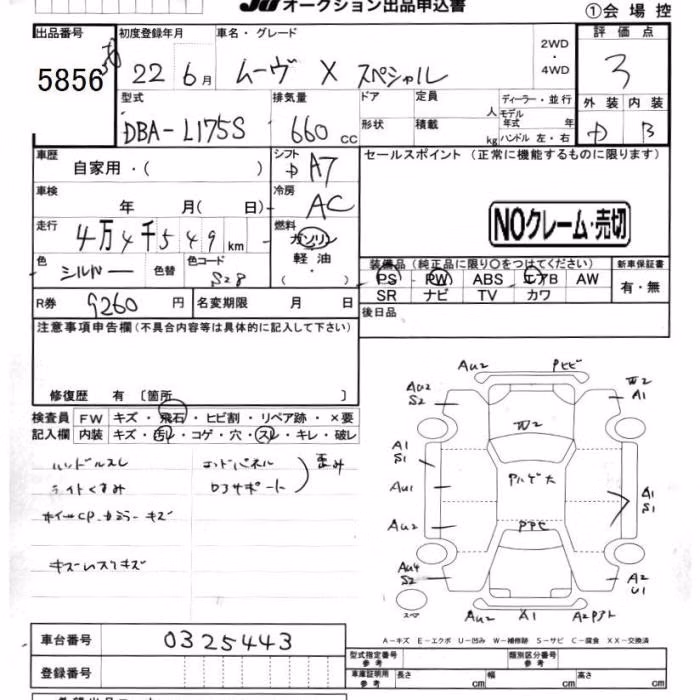 オークション出品申込書
①会場控
出品番号
5856
初度登録年月
22年6月
車名・グレード
ムーヴ X スペシャル
2WD
・
4WD
評価点
3
型式
DBA-L175S
排気量
660cc
ドア
形状
定員 人
積載 kg
ディーラー・並行
モデル年式 年
ハンドル 左・右
外装 内装
D B
車歴
自家用・( )
シフト
D AT
セールスポイント(正常に機能するものに限ります)
車検
年 月( 日)
冷房
AC
NOクレーム・売切
走行
4万4千549km
燃料
ガソリン
軽油
・( )
色
シルバー
色替
色コード
S28
装備品(純正品に限り○をつけてください)
新車保証書
PS PW ABS エアB AW
有・無
SR ナビ TV カワ
R券 9260円
名変期限 月 日
後日品
注意事項申告欄(不具合内容等は具体的に記入して下さい)
修復歴 有〔箇所 〕
検査員 FW キズ・飛石・ヒビ割・リペア跡・×要
記入欄 内装 キズ・汚レ・コゲ・穴・スレ・キレ・破レ
ハンドルスレ エンドパネル 歪み
ライトくすみ コアサポート
ホイールCP、ミラーキズ
キズ スリキズ
AU2 Pヒビ
AU2
S2
W2
A1
W2
A1
S1
AU1
AU2
A1
S1
AU4
S2
A2
U1
スペア
AU2 A1 A2
A-キズ E-エクボ U-凹み W-補修跡 S-サビ C-腐食 XX-交換済
車台番号 0325443
登録番号
型式指定番号 参考
類別区分番号 参考
車庫証明用 参考 長さ cm 幅 cm 高さ cm